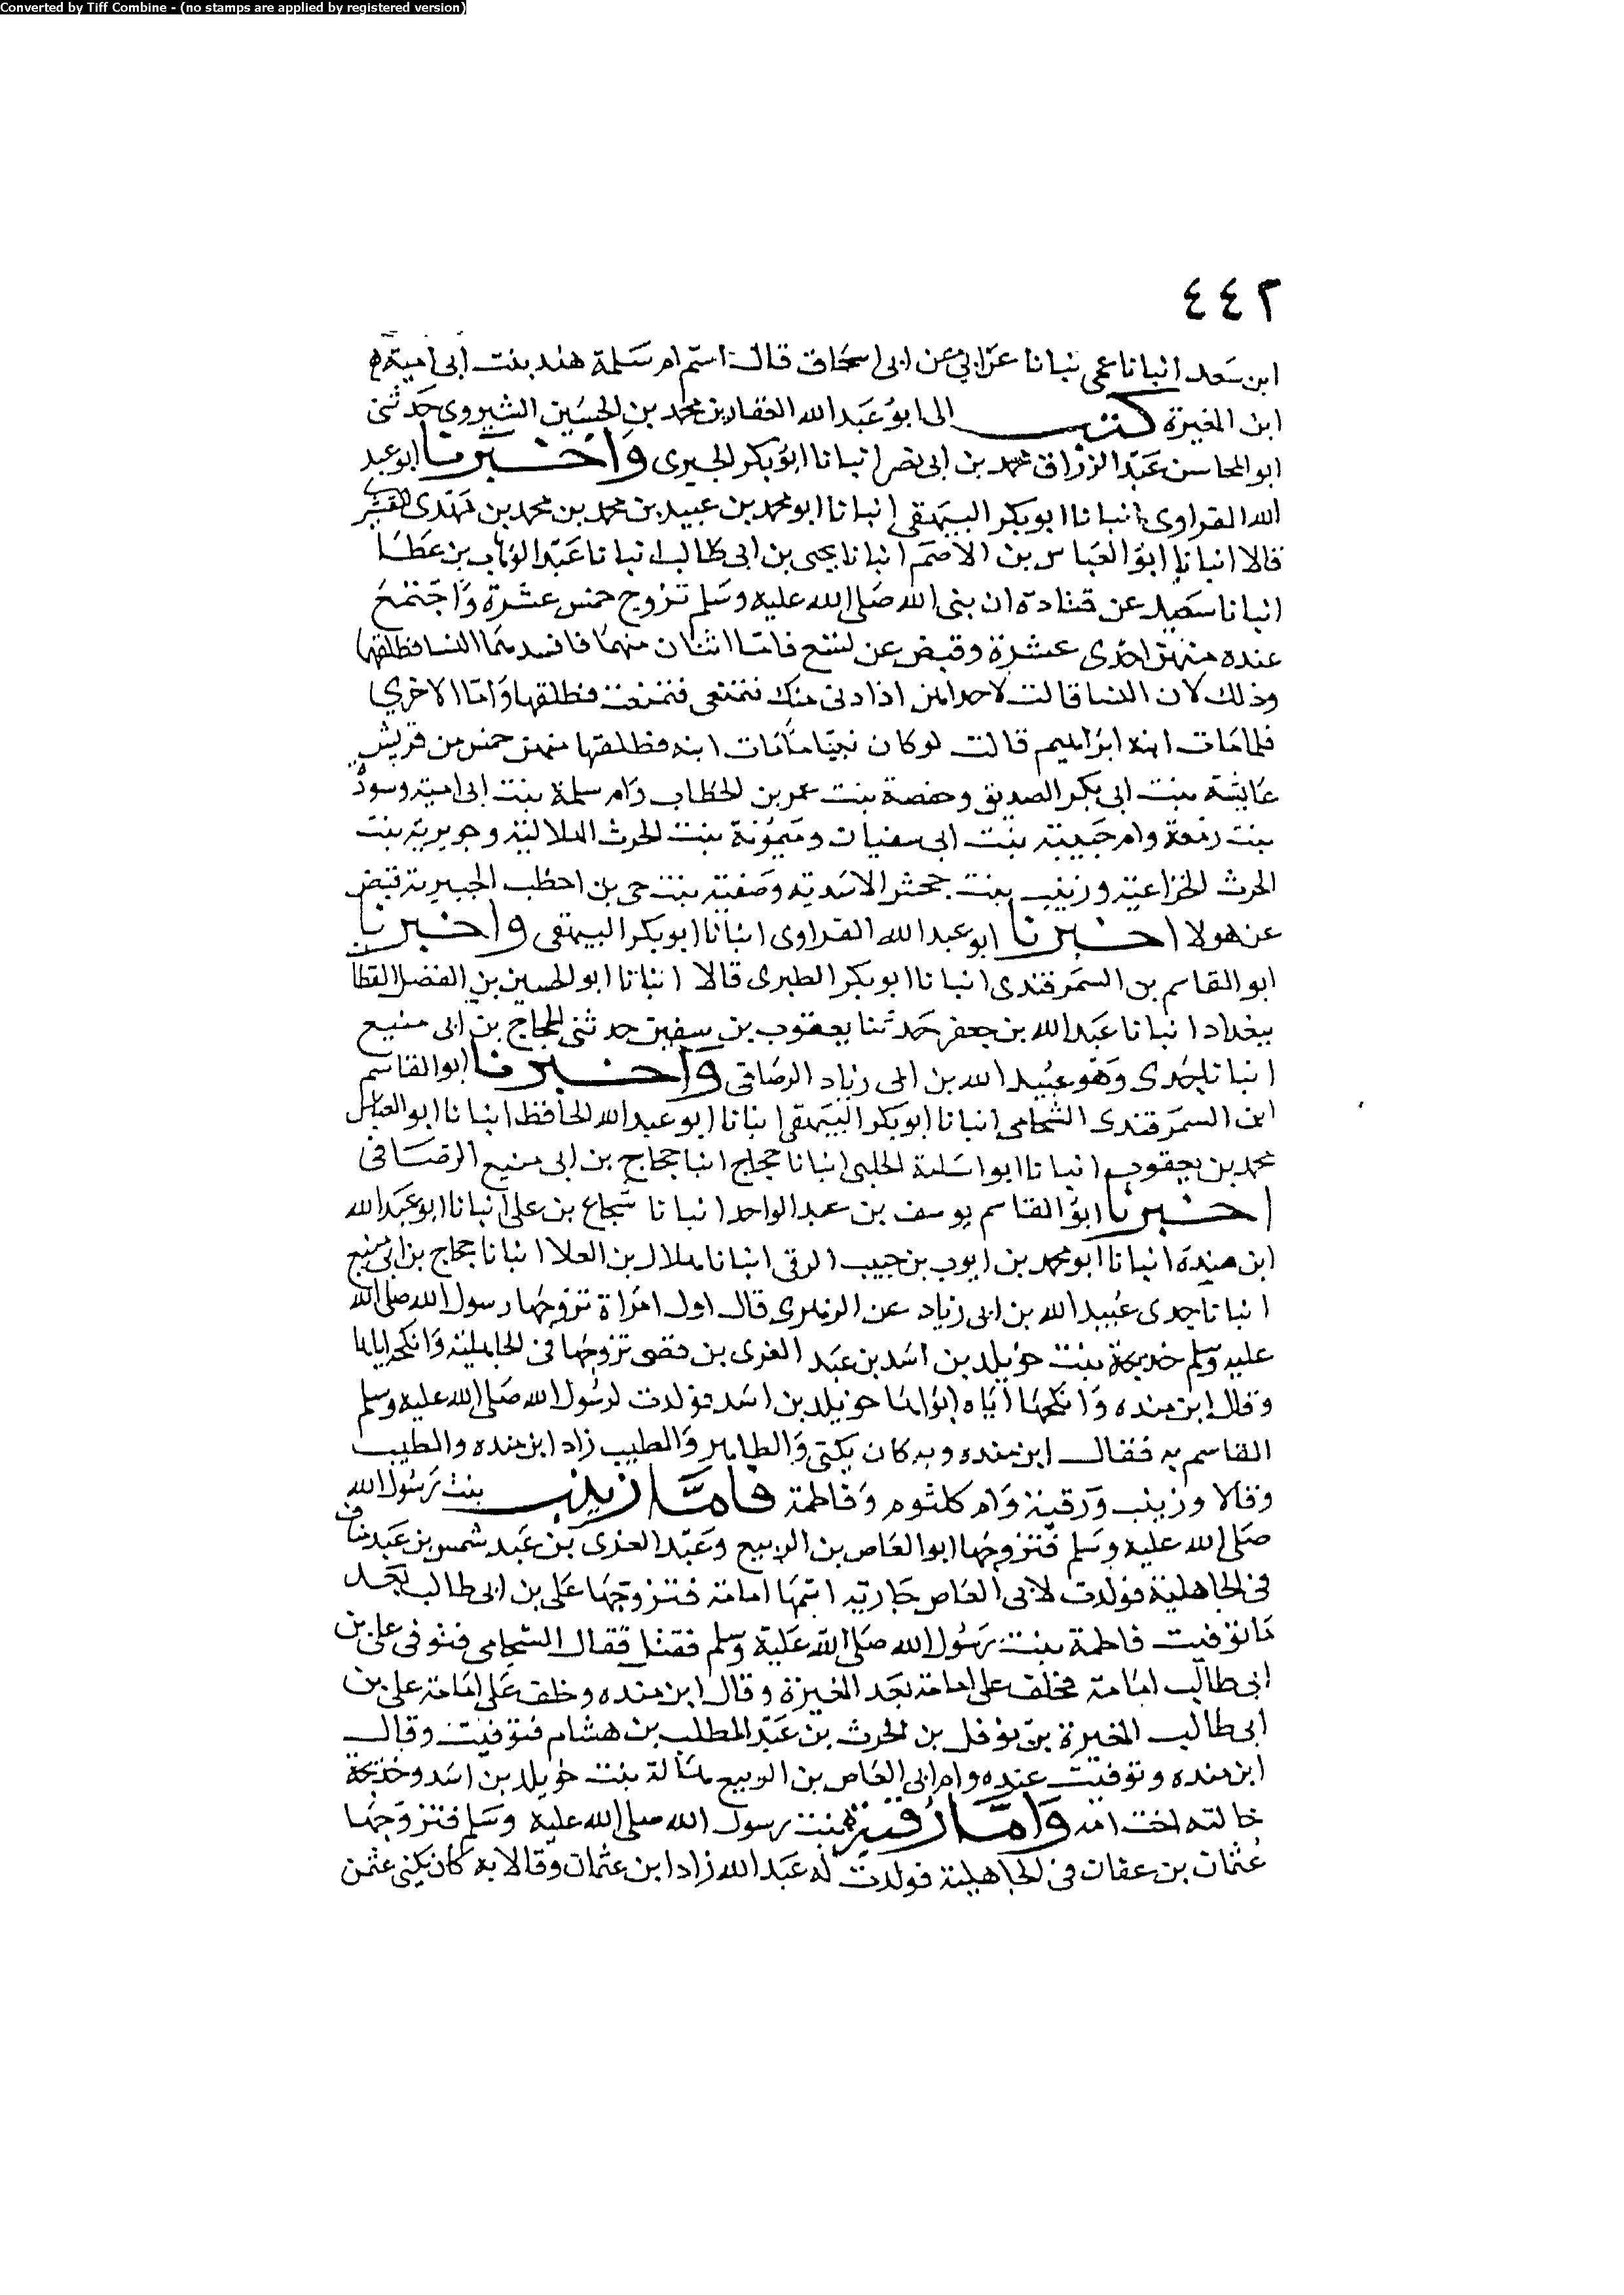 Converted by Tiff Combine - (no stamps are applied by registered version)
٤٤٢
ابن سعد انبانا عمي نبانا عن ابي عن ابي اسحاق قال اسم ام سلمة هند بنت ابي امية
ابن المغيرة كتب الى ابو عبد الله الغفار بن محمد بن الحسين الشيروي حدثني
ابو المحاسن عبد الرزاق محمد بن ابي نصر انبانا ابو بكر الحيري واخبرنا ابو عبد
الله الفراوي انبانا ابو بكر البيهقي انبانا ابو محمد بن عبيد بن محمد بن محمد بن مهدي القشيري
قالا انبانا ابو العباس بن الاصم انبانا يحيى بن ابي طالب انبانا عبد الوهاب بن عطا
انبانا سعيد عن قتادة ان نبي الله صلى الله عليه وسلم تزوج خمس عشرة واجتمع
عنده منهن احدى عشرة وقبض عن تسع فاما اثنتان منهما فافسدتهما النسا فطلقهما
وذلك لان النسا قالت لاحداهن اذا دنى منك تمنعي فتمنعت فطلقها واما الاخري
فلما مات ابنه ابراهيم قالت لو كان نبيا ما مات ابنه فطلقها منهن خمس من قريش
عايشة بنت ابي بكر الصديق وحفصة بنت عمر بن الخطاب وام سلمة بنت ابي امية وسودة
بنت زمعة وام حبيبة بنت ابي سفيان وميمونة بنت الحرث الهلالية وجويرية بنت
الحرث الخزاعية وزينب بنت جحش الاسدية وصفية بنت حي بن اخطب الخيبرية قبض
عن هولا اخبرنا ابو عبد الله الفراوي انبانا ابو بكر البيهقي واخبرنا
ابو القاسم بن السمرقندي انبانا ابو بكر الطبري قالا انبانا ابو الحسين بن الفضل القطا
ببغداد انبانا عبد الله بن جعفر حدثنا يعقوب بن سفين حدثني الحجاج بن ابي منيع
انبانا جدي وهو عبيد الله بن ابي زياد الرصافي واخبرنا ابو القاسم
ابن السمرقندي الشحامي انبانا ابو بكر البيهقي انبانا ابو عبد الله الحافظ انبانا ابو العباس
محمد بن يعقوب انبانا ابو اسامة الحلبي انبانا حجاج انبا حجاج بن ابي منيع الرصافي
اخبرنا ابو القاسم يوسف بن عبد الواحد انبانا شجاع بن علي انبانا ابو عبد الله
ابن مندة انبانا ابو محمد بن ايوب بن حبيب الرقي انبانا هلال بن العلا انبانا حجاج بن ابي منيع
انبانا جدي عبيد الله بن ابي زياد عن الزهري قال اول امراة تزوجها رسول الله صلى الله
عليه وسلم خديجة بنت خويلد بن اسد بن عبد العزى بن قصى تزوجها في الجاهلية وانكحه اياها
وقال ابن منده وانكحها اياه ابوها خويلد بن اسد فولدت لرسول الله صلى الله عليه وسلم
القاسم به فقال ابن منده وبه كان يكنى والطاهر والطيب زاد ابن منده والمطيب
وقالا وزينب ورقية وام كلثوم وفاطمة فاما زينب بنت رسول الله
صلى الله عليه وسلم فتزوجها ابو العاص بن الربيع وعبد العزى بن عبد شمس بن عبد مناف
في الجاهلية فولدت لابي العاص جارية اسمها امامة فتزوجها علي بن ابي طالب بعد
ما توفيت فاطمة بنت رسول الله صلى الله علية وسلم فقتل فقال الشحامي فتوفي علي بن
ابي طالب امامة فخلف على امامة بعد المغيرة وقال ابن منده وخلف على امامة علي بن
ابي طالب المغيرة بن نوفل بن الحرث بن عبد المطلب بن هشام فتوفيت وقال
ابن منده وتوفيت عنده وام ابي العاص بن الربيع هالة بنت خويلد بن اسد وخديجة
خالته اخت امه واما رقية بنت رسول الله صلى الله عليه وسلم فتزوجها
عثمان بن عفان في الجاهلية فولدت له عبد الله زاد ابن عثمان وقالا به كان يكنى عثمن